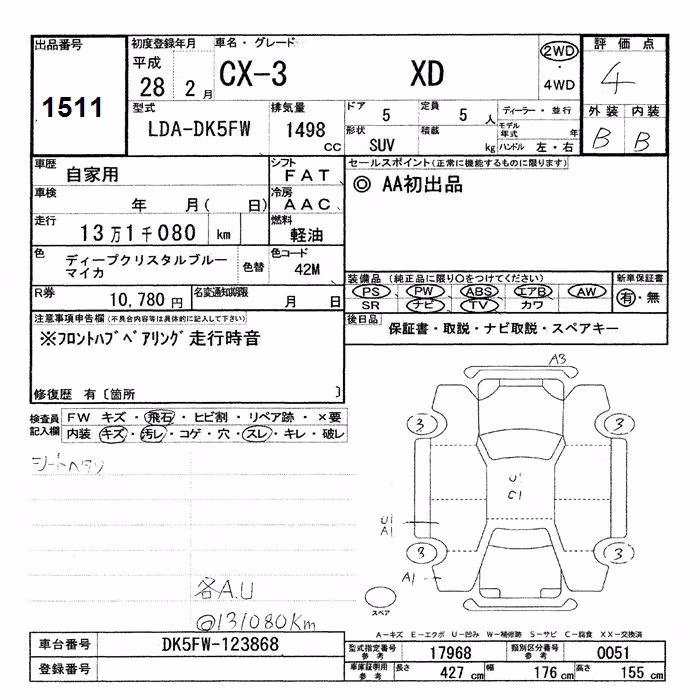 出品番号
1511
初度登録年月
平成
28 2月
車名・グレード
CX-3 XD
2WD
・
4WD
評価点
4
外装 内装
B B
型式
LDA-DK5FW
排気量
1498
CC
ドア 5
定員 5人
形状 SUV
積載 kg
ディーラー・並行
モデル年式 年
ハンドル 左・右
車歴 自家用
シフト FAT
車検 年 月( 日)
冷房 AAC
走行 13万1千080 km
燃料 軽油
色 ディープクリスタルブルー
マイカ
色替
色コード
42M
R券 10,780円
名変通知期限 月 日
セールスポイント(正常に機能するものに限ります)
◎ AA初出品
装備品(純正品に限り○をつけてください)
PS PW ABS エアB AW
SR ナビ TV カワ
新車保証書
有・無
後日品 保証書・取説・ナビ取説・スペアキー
注意事項申告欄(不具合内容等は具体的に記入して下さい)
※フロントハブベアリング走行時音
修復歴 有〔箇所 〕
検査員
記入欄
FW キズ・飛石・ヒビ割・リペア跡・×要
内装 キズ・汚レ・コゲ・穴・スレ・キレ・破レ
シートヘタリ
各A.U
@131080Km
A3
3 3
U1
C1
U1
A1
3 3
A1
スペア
A-キズ E-エクボ U-凹み W-補修跡 S-サビ C-腐食 XX-交換済
車台番号 DK5FW-123868
登録番号
型式指定番号
参考
17968
類別区分番号
参考
0051
車庫証明用
参考
長さ 427cm 幅 176cm 高さ 155cm